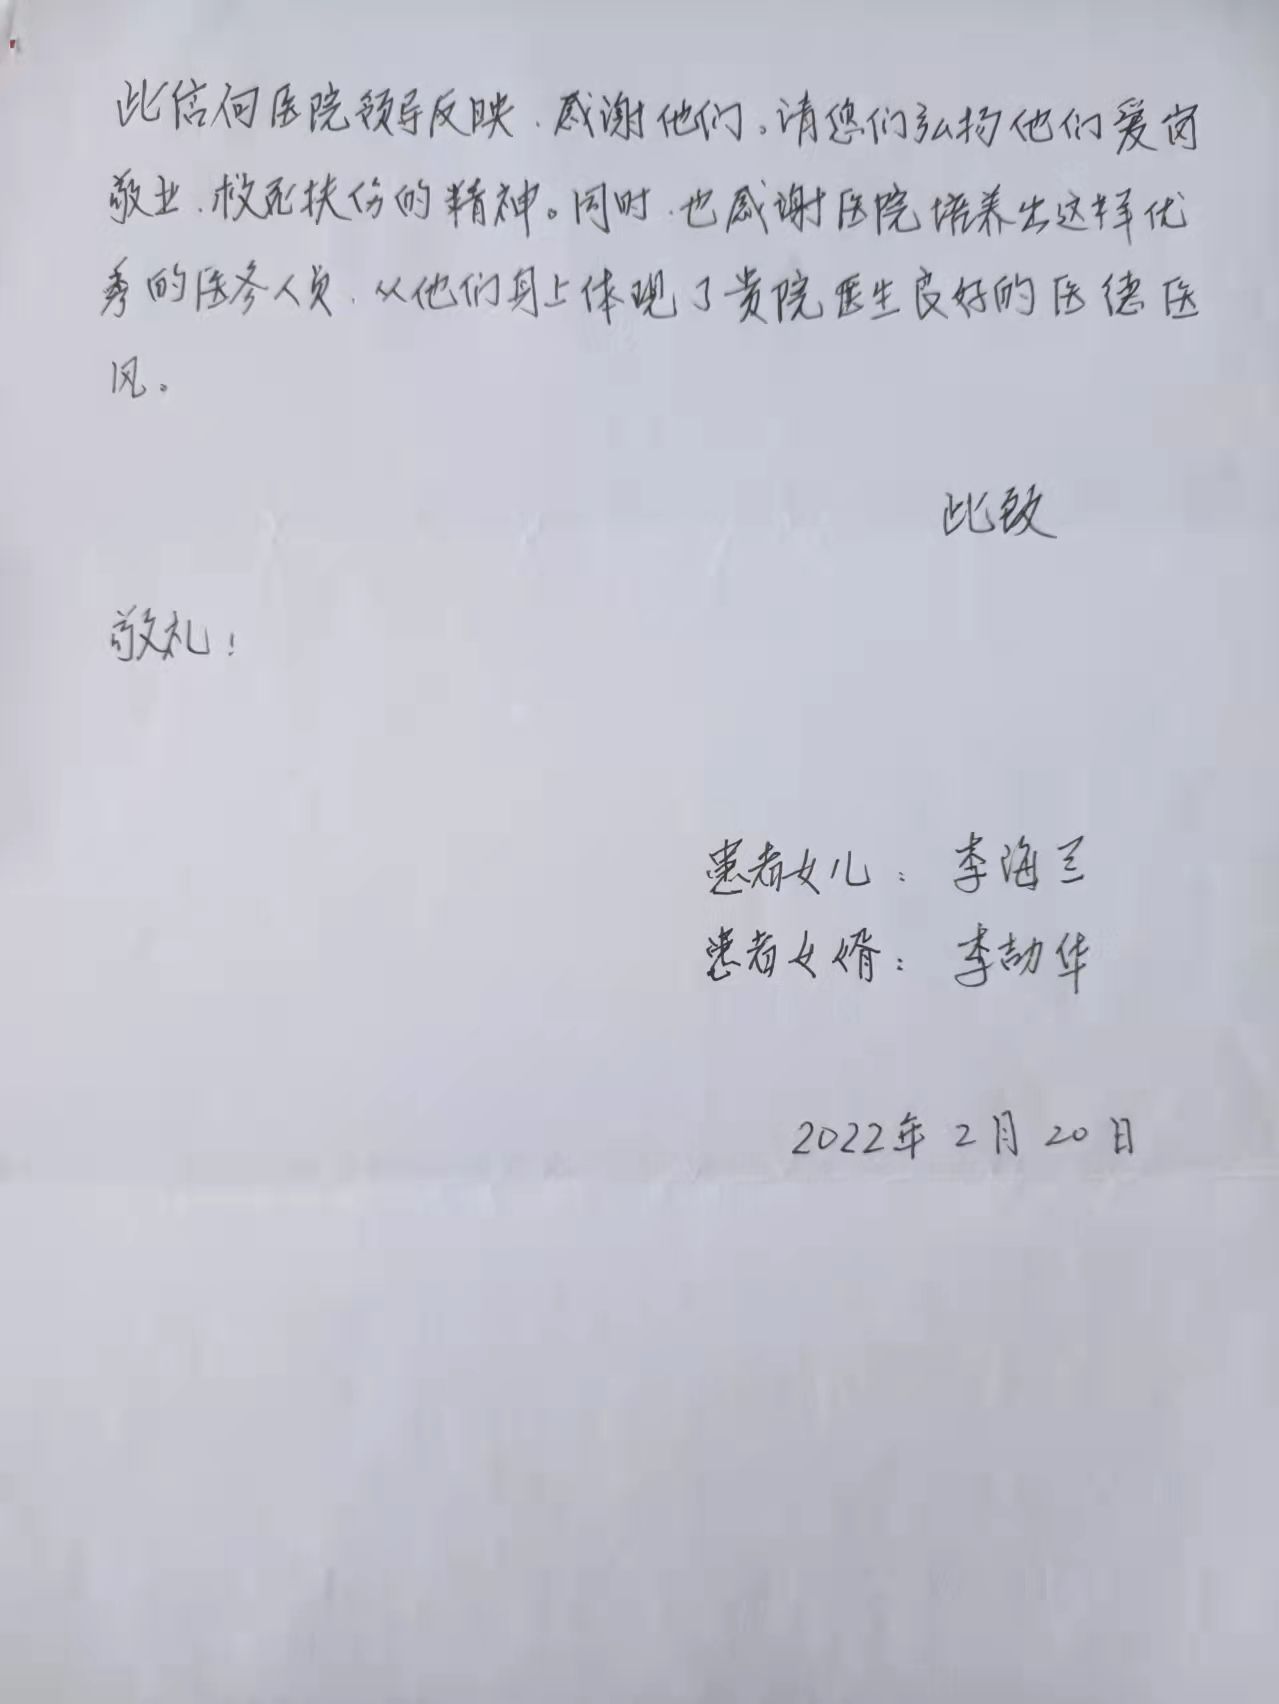 此信向医院领导反映、感谢他们。请您们弘扬他们爱岗
敬业、救死扶伤的精神。同时、也感谢医院培养出这样优
秀的医务人员、从他们身上体现了贵院医生良好的医德医
风。
此致
敬礼！
患者女儿：李海兰
患者女婿：李劼华
2022年2月20日